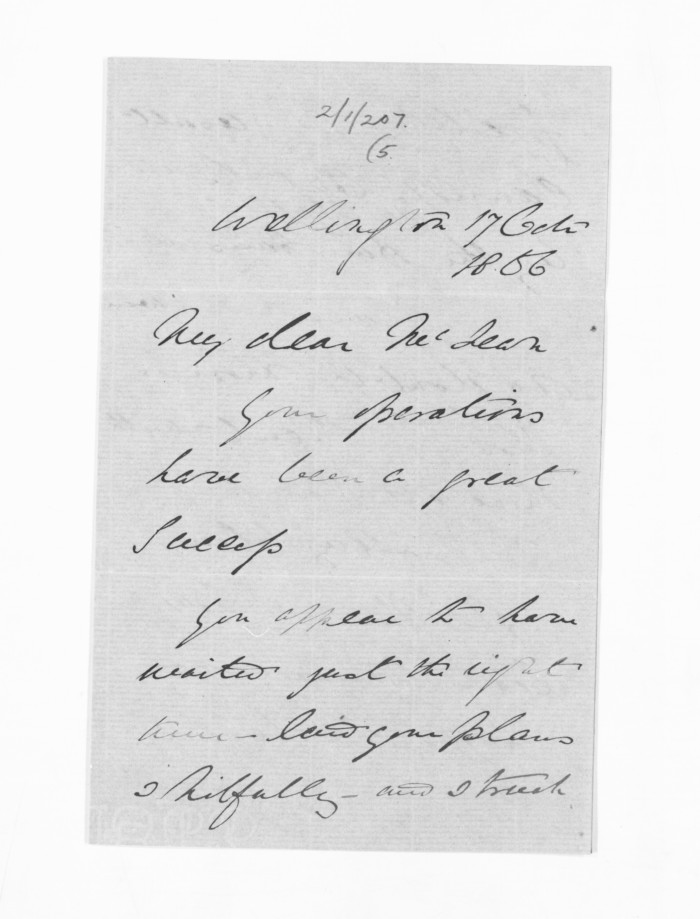 2/1/207.
(5.
Wellington 17 Octr
1866
My dear McLean
Your operations
have been a great
Success
You appear to have
waited just the right
time - laid your plans
skilfully - and struck